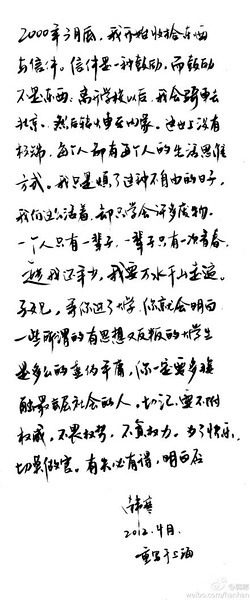 2000年3月底，我开始收拾东西
与信件。信件是一种鼓励，而鼓励
不是东西。离开学校以后，我会骑车去
北京，然后骑车去内蒙。这世上没有
极端，每个人都有每个人的生活思维
方式。我只是烦了这种不自由的日子，
我们这么活着，却只学会许多废物。
一个人只有一辈子，一辈子只有一次青春，
趁我还年少，我要万水千山走遍。
等你进了大学，你就会明白
一些所谓的有思想又反叛的大学生
是多么的虚伪平庸，你一定要多接
触最底层社会的人。切记，要不附
权威，不畏权势，不负权力。为了快乐，
切莫做官。有失必有得，明白否
韩寒
2012.4月.
重写于上海
weibo.com/hanhan